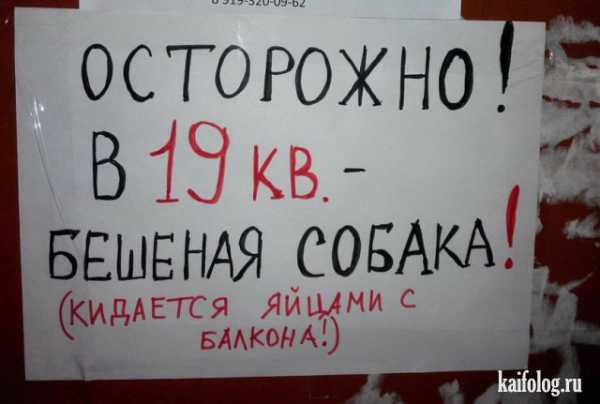 8 919-320-09-62
ОСТОРОЖНО!
В 19 КВ. -
БЕШЕНАЯ СОБАКА!
(КИДАЕТСЯ ЯЙЦАМИ С
БАЛКОНА!)
kaifolog.ru